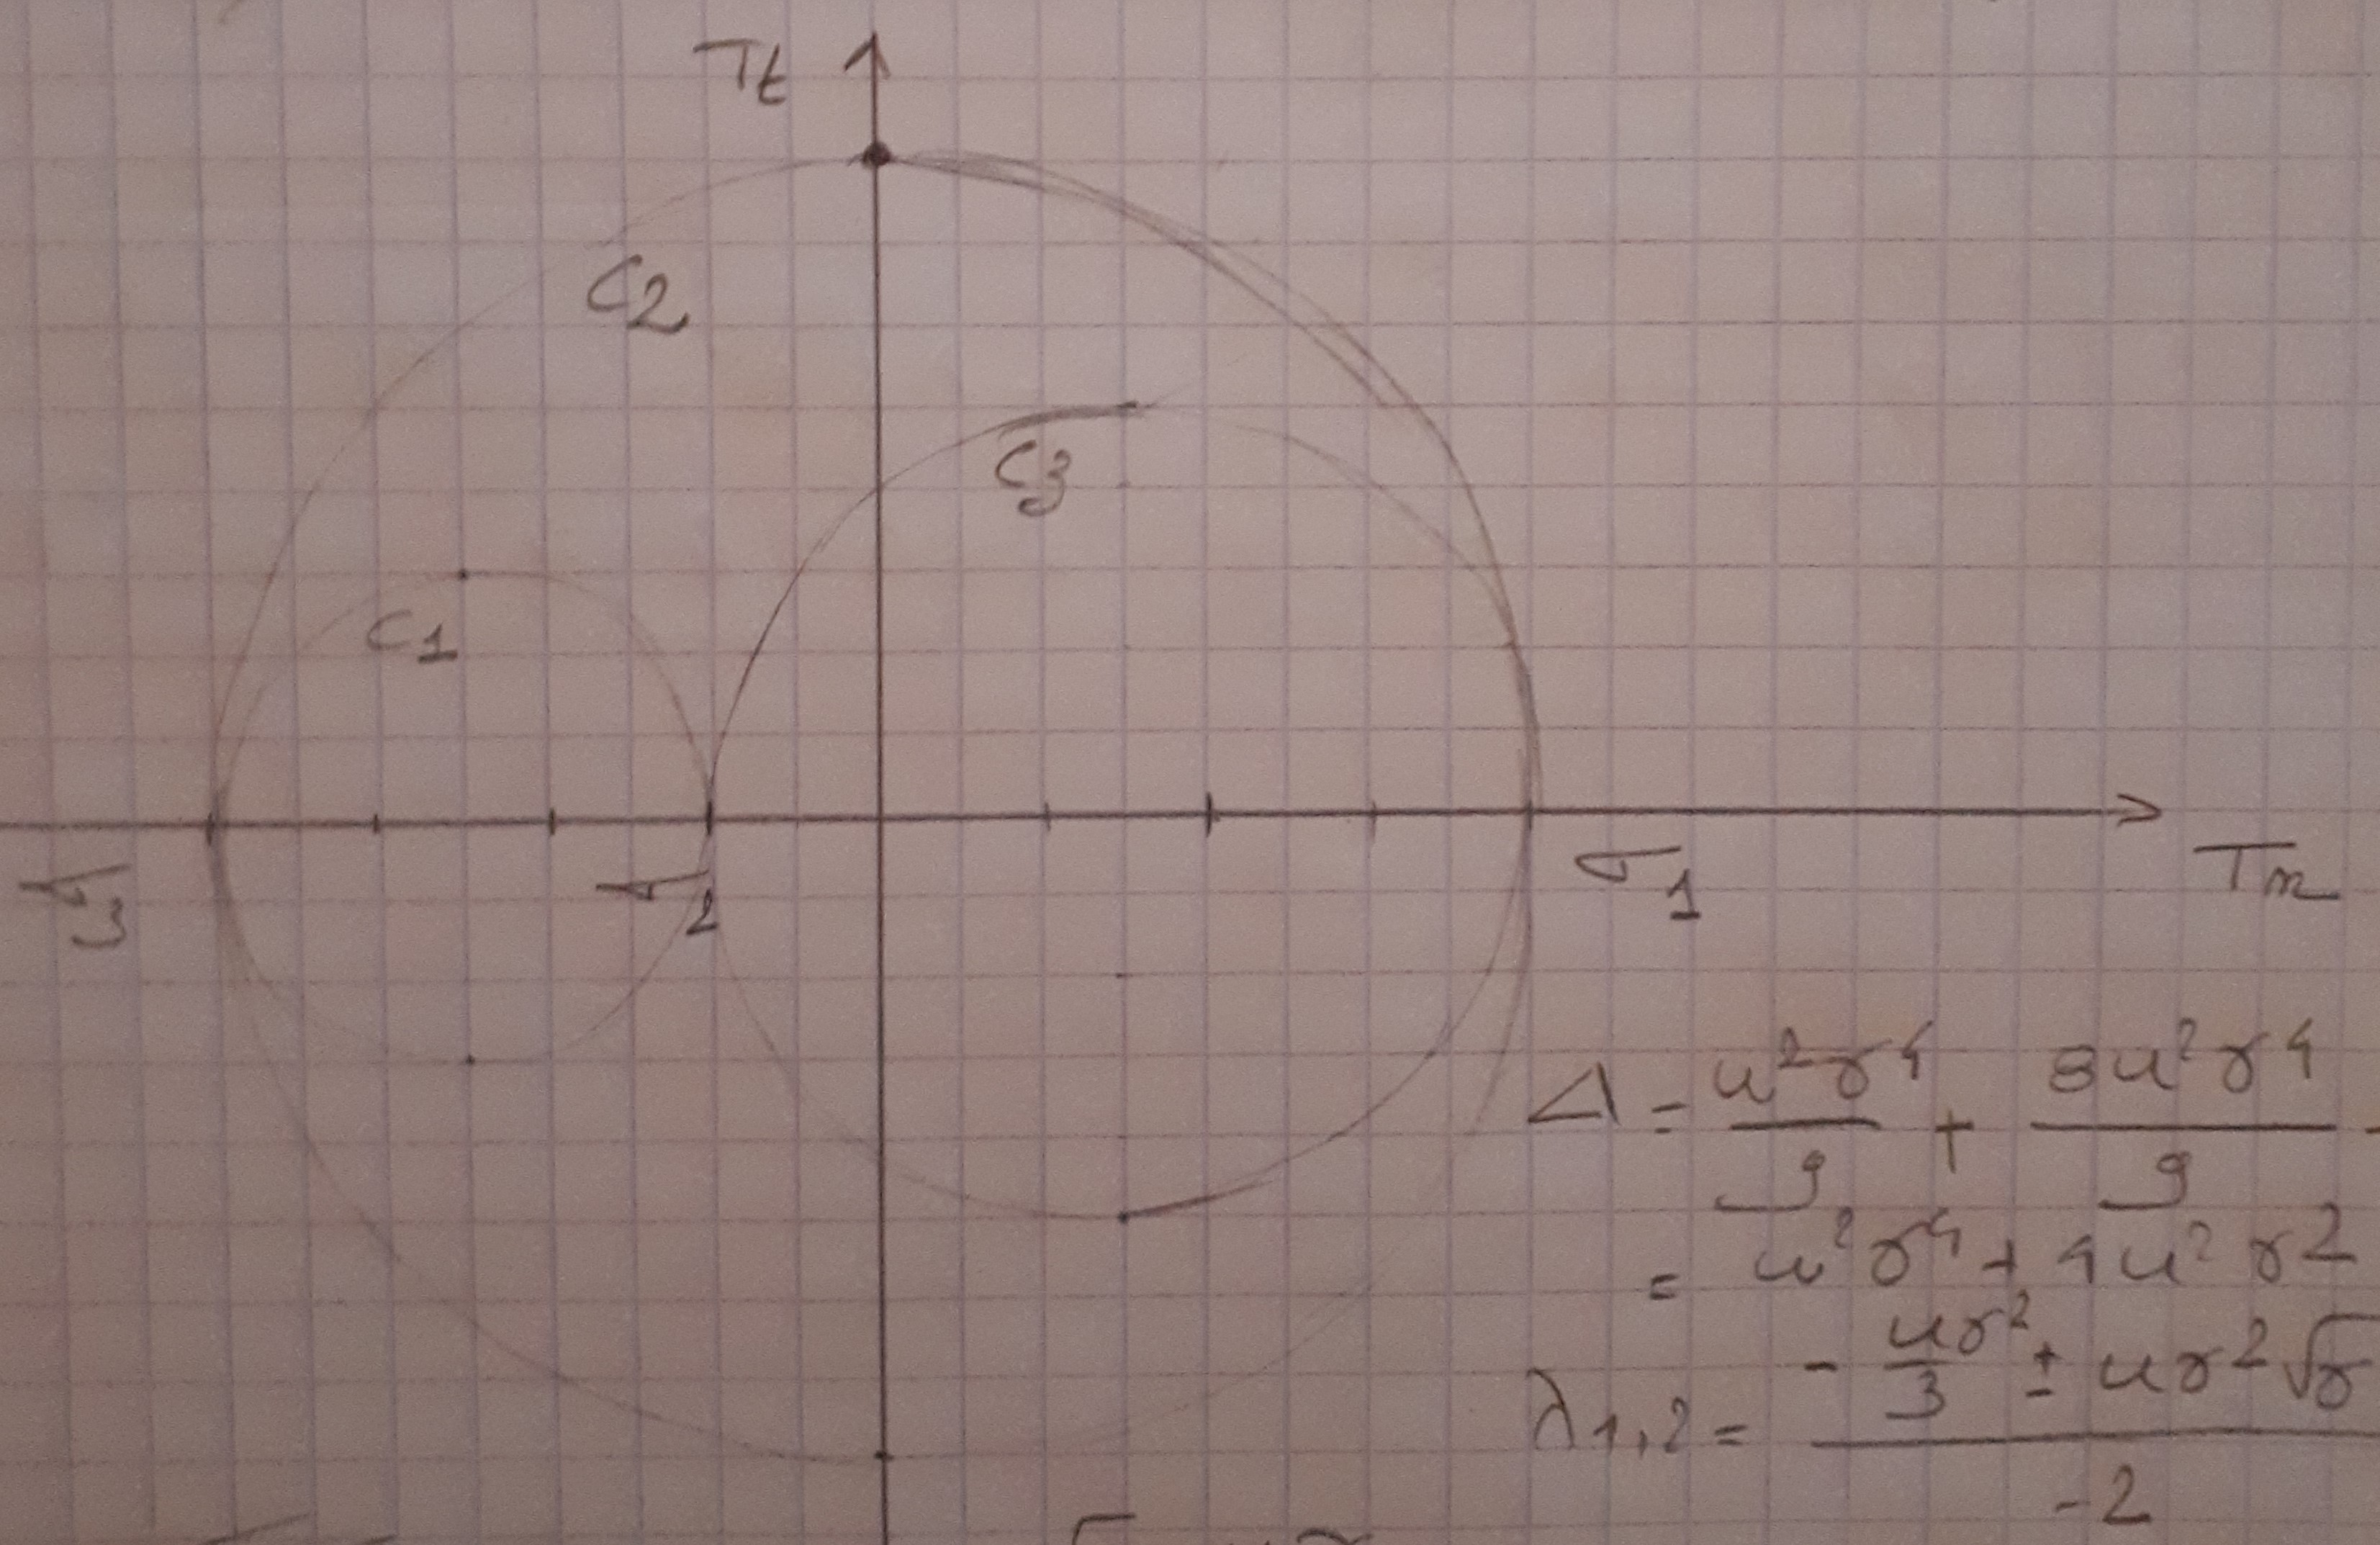 Tt
C2
C3
C1
σ3
σ2
σ1
Tn
Δ = u²γ⁴/9 + 8u²γ⁴/9
= u²γ⁴ + 4u²γ2
λ1,2 = (- uγ²/3 ± uγ2√γ)/-2